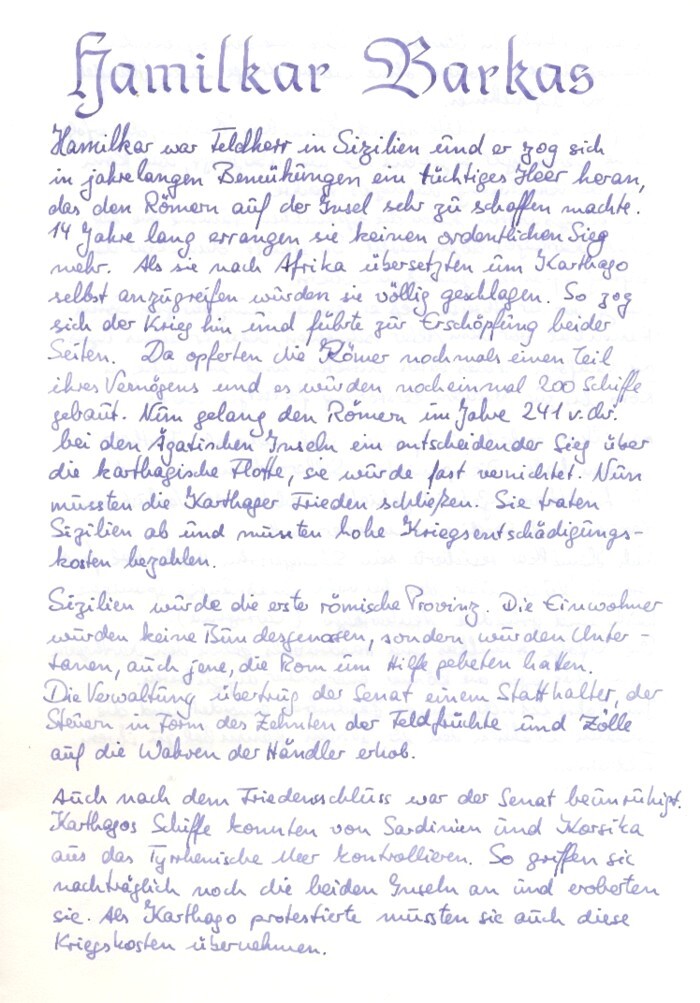 Hamilkar Barkas
Hamilkar war Feldherr in Sizilien und er zog sich
in jahrelangen Bemühungen ein tüchtiges Heer heran,
das den Römern auf der Insel sehr zu schaffen machte.
14 Jahre lang errangen sie keinen ordentlichen Sieg
mehr. Als sie nach Afrika übersetzten um Karthago
selbst anzugreifen wurden sie völlig geschlagen. So zog
sich der Krieg hin und führte zur Erschöpfung beider
Seiten. Da opferten die Römer nochmals einen Teil
ihres Vermögens und es wurden nocheinmal 200 Schiffe
gebaut. Nun gelang den Römern im Jahre 241 v. Chr.
bei den Ägatischen Inseln ein entscheidender Sieg über
die karthagische Flotte, sie wurde fast vernichtet. Nun
mussten die Karthager Frieden schließen. Sie traten
Sizilien ab und mussten hohe Kriegsentschädigungs-
kosten bezahlen.
Sizilien wurde die erste römische Provinz. Die Einwohner
wurden keine Bundesgenossen, sondern wurden Unter-
tanen, auch jene, die Rom um Hilfe gebeten hatten.
Die Verwaltung übertrug der Senat einem Statthalter, der
Steuern in Form des Zehnten der Feldfrüchte und Zölle
auf die Wahren der Händler erhob.
Auch nach dem Friedensschluss war der Senat beunruhigt.
Karthagos Schiffe konnten von Sardinien und Korsika
aus das Tyrrhenische Meer kontrollieren. So griffen sie
nachträglich noch die beiden Inseln an und eroberten
sie. Als Karthago protestierte mussten sie auch diese
Kriegskosten übernehmen.